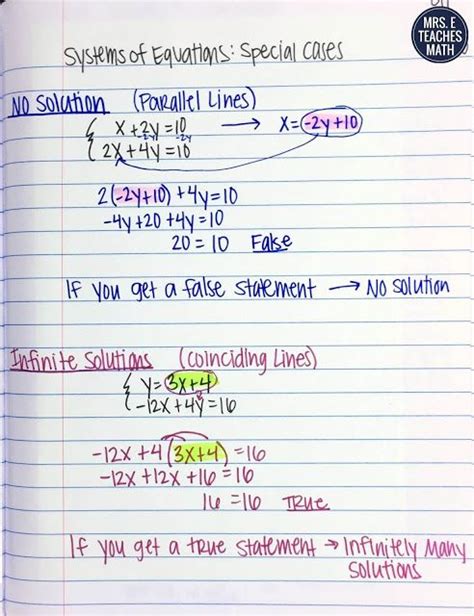 MRS. E
TEACHES
MATH
Systems of Equations: Special Cases
No Solution (Parallel Lines)
x+2y=10 → x=-2y+10
-2y -2y
2x+4y=10
2(-2y+10)+4y=10
-4y+20+4y=10
20=10 False
If you get a false statement → No solution
Infinite Solutions (Coinciding Lines)
y=3x+4
-12x+4y=16
-12x+4(3x+4)=16
-12x+12x+16=16
16=16 True
If you get a true statement → Infinitely Many
Solutions